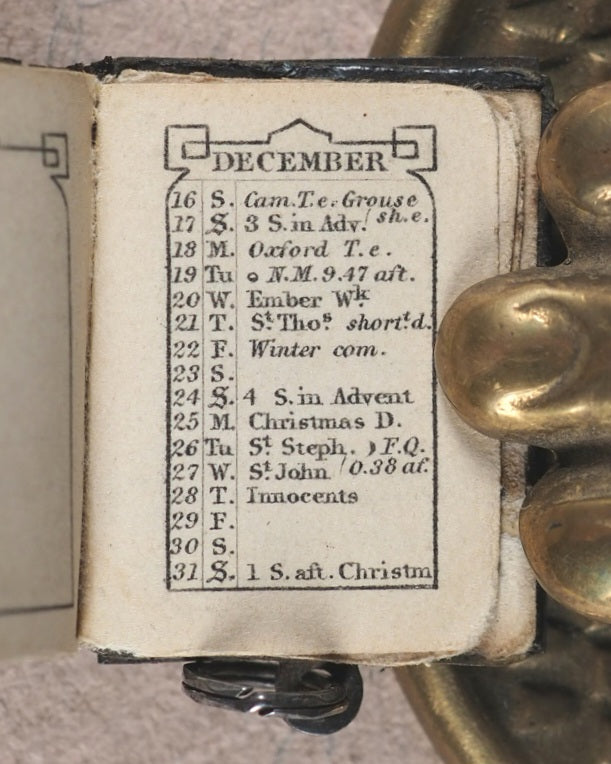 DECEMBER
16 S. Cam.T.e. Grouse
17 S. 3 S.in Adv. / sh.e.
18 M. Oxford T.e.
19 Tu N.M. 9.47 aft.
20 W. Ember Wk.
21 T. St. Thos. short.t d.
22 F. Winter com.
23 S.
24 S. 4 S.in Advent
25 M. Christmas D.
26 Tu St Steph. ) F.Q.
27 W. St. John / 0.38 af.
28 T. Innocents
29 F.
30 S.
31 S. 1 S. aft. Christm